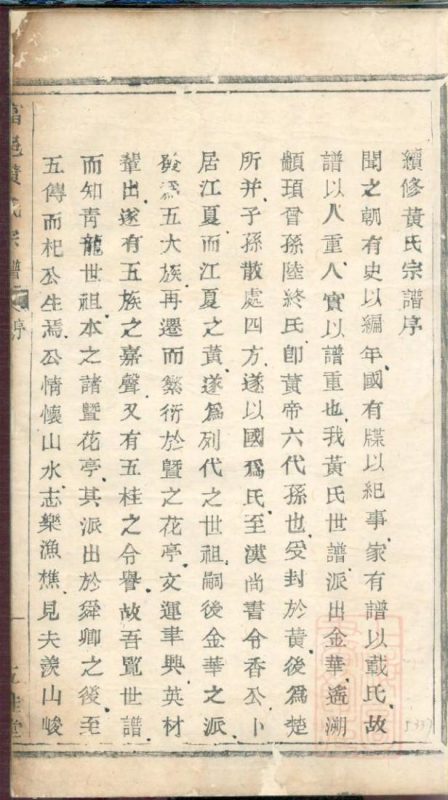 續修黃氏宗譜序
聞之朝有史以編年國有牒以紀事家有譜以載氏故
譜以人重人實以譜重也我黃氏世譜派出金華遙溯
顓頊曾孫陸終氏卽黃帝六代孫也受封於黃後爲楚
所并子孫散處四方遂以國爲氏至漢尚書令香公卜
居江夏而江夏之黃遂爲列代之世祖嗣後金華之派
發爲五大族再遷而繁衍於暨之花亭文運聿興英材
輩出遂有五族之嘉聲又有五桂之令譽故吾覧世譜
而知靑龍世祖本之諸暨花亭其派出於舜卿之後至
五傳而杞公生焉公情懷山水志樂漁樵見夫羨山峻
富邑黃氏宗譜
序
五桂堂
5337